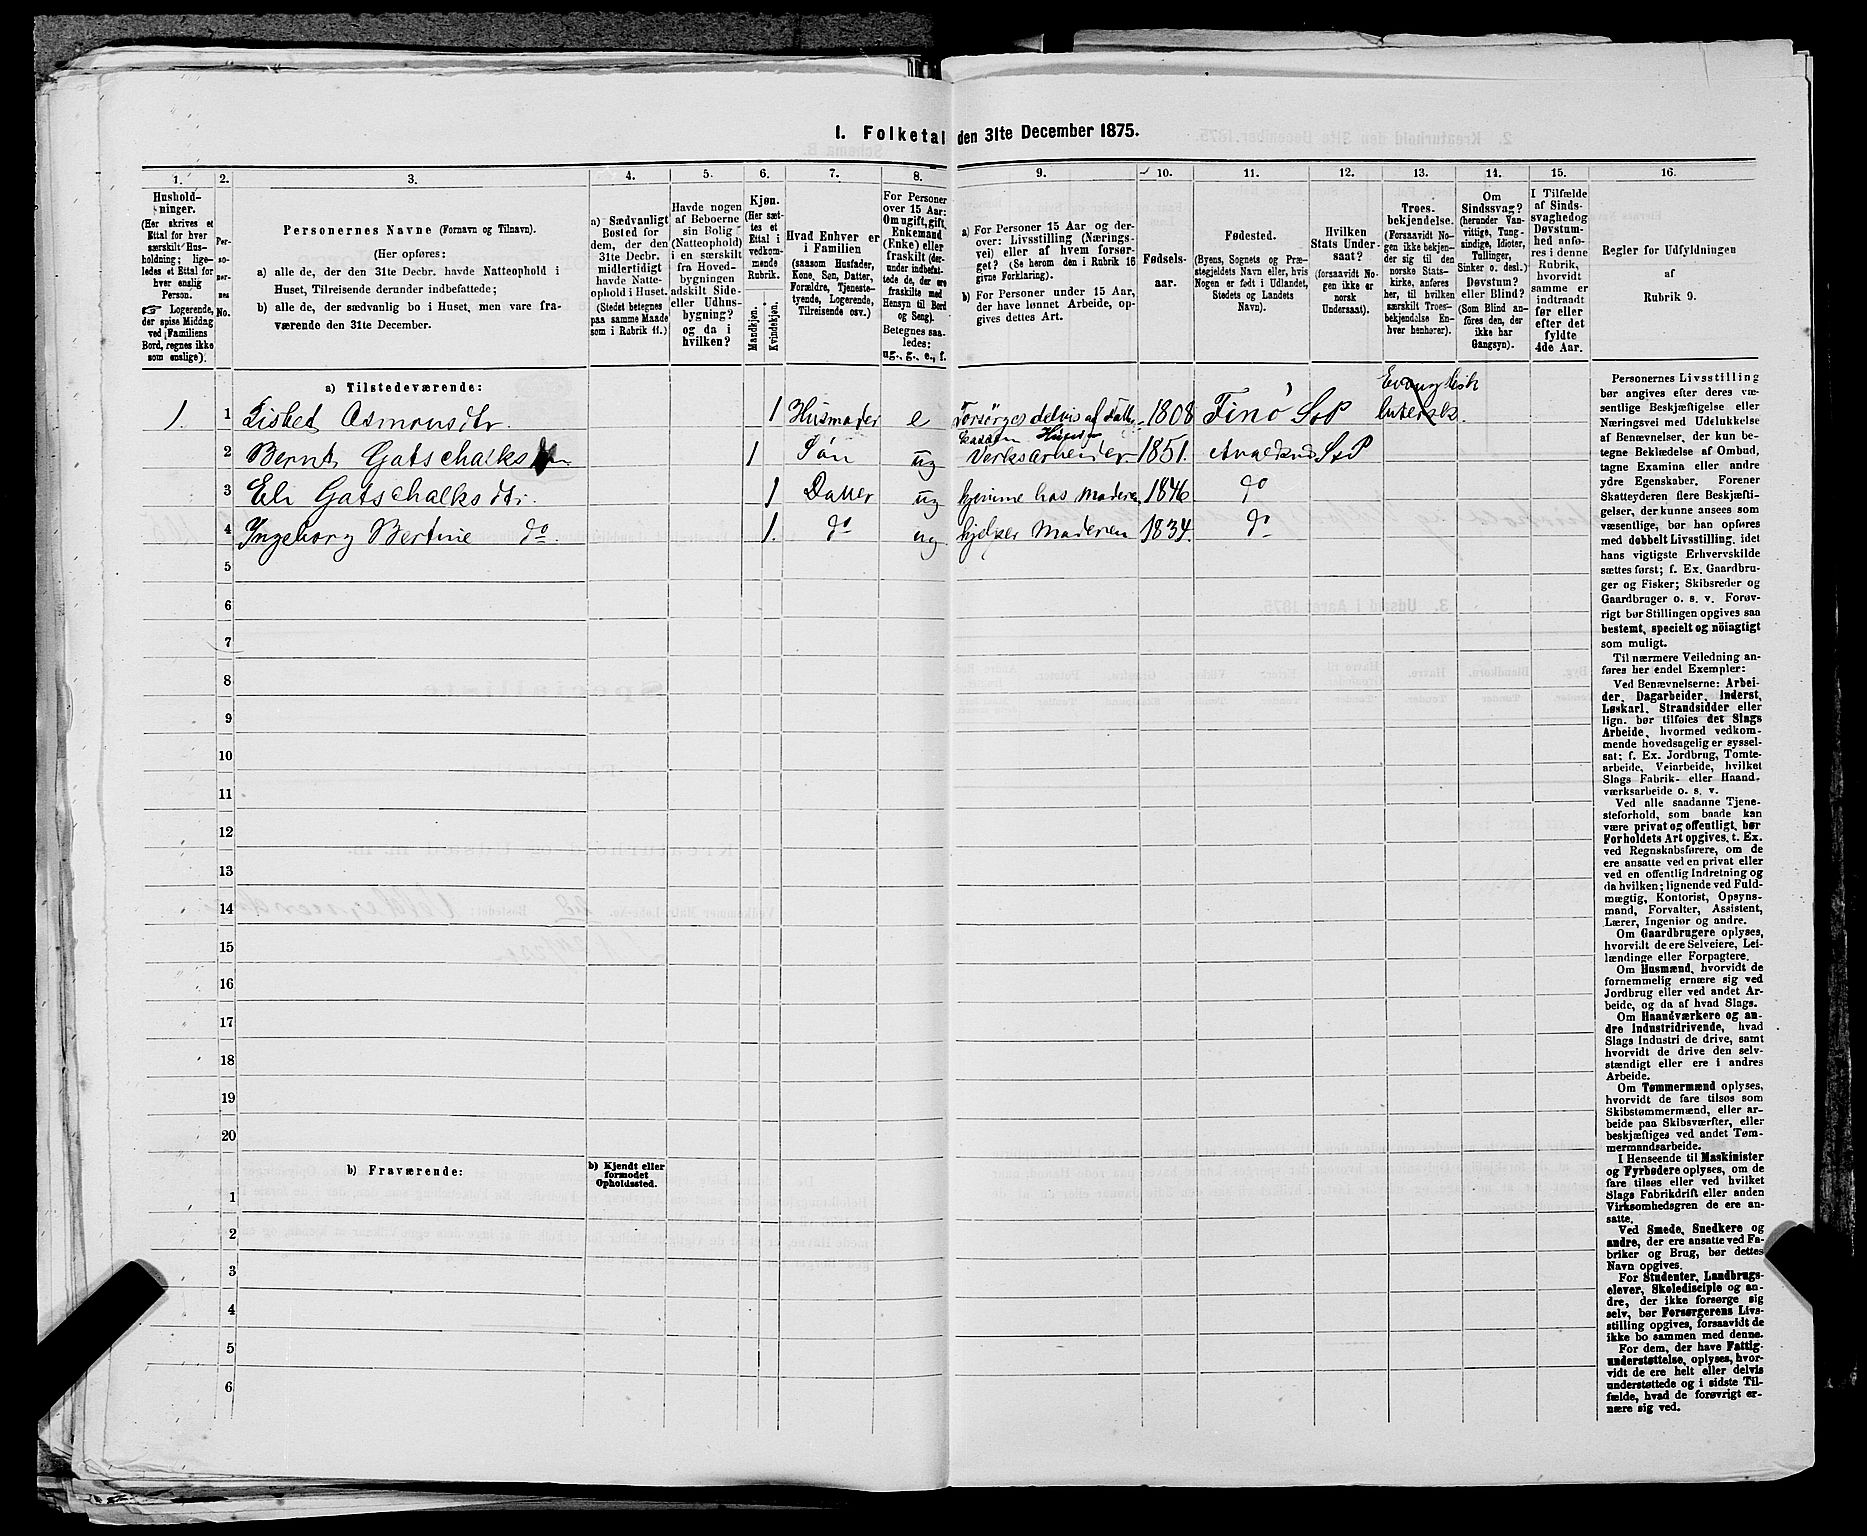 I. Folketal den 31te December 1875.
1. 2. 3. 4. 5. 6. 7. 8. 9. 10. 11. 12. 13. 14. 15. 16.
Hushold-
ninger.
(Her skrives et
Ettal for hver
særskilt Hus-
holdning; lige-
ledes et Ettal for
hver enslig
Person.
☞ Logerende,
der spise Middag
ved Familiens
Bord, regnes ikke
som enslige).
Per-
so-
ner-
nes
No.
Personernes Navne (Fornavn og Tilnavn).
(Her opføres:
a) alle de, der den 31te Decbr. havde Natteophold i
Huset, Tilreisende derunder indbefattede;
b) alle de, der sædvanlig bo i Huset, men vare fra-
værende den 31te December.
a) Sædvanligt
Bosted for
dem, der den
31te Decbr.
midlertidigt
havde Natte-
ophold i Huset.
(Stedet betegnes
paa samme Maade
som i Rubrik 11.)
Havde nogen
af Beboerne
sin Bolig
(Natteophold)
i en særskilt
fra Hoved-
bygningen
adskilt Side-
eller Udhus-
bygning?
og da i
hvilken?
Kjøn.
(Her sæt-
tes et
Ettal i
vedkom-
mende
Rubrik.
Mandkjøn.
Kvindekjøn.
Hvad Enhver er
i Familien
(saasom Husfader,
Kone, Søn, Datter,
Forældre, Tjeneste-
tyende, Logerende,
Tilreisende osv.)
For Personer
over 15 Aar:
Om ugift, gift,
Enkemand
(Enke) eller
fraskilt (der-
under indbefat-
tede de, der ere
fraskilte med
Hensyn til Bord
og Seng).
Betegnes saa-
ledes:
ug., g., e., f.
a) For Personer 15 Aar og der-
over: Livsstilling (Nærings-
vei) eller af hvem forsør-
get? (Se herom den i Rubrik 16
givne Forklaring).
b) For Personer under 15 Aar,
der have lønnet Arbeide, op-
gives dettes Art.
Fødsels-
aar.
Fødested.
(Byens, Sognets og Præ-
stegjeldets Navn eller, hvis
Nogen er født i Udlandet,
Stedets og Landets
Navn).
Hvilken
Stats Under-
saat?
(forsaavidt No-
gen ikke er
norsk
Undersaat).
Troes-
bekjendelse.
(Forsaavidt No-
gen ikke bekjen-
der sig til den
norske Stats-
kirke, anføres
her, til hvilken
særskilt Troes-
bekjendelse En-
hver henhører).
Om
Sindssvag?
(herunder Van-
vittige, Tung-
sindige, Idioter,
Tullinger,
Sinker o. desl.)
Døvstum?
eller Blind?
(Som Blind an-
føres den, der
ikke har
Gangsyn).
I Tilfælde
af Sinds-
svaghed og
Døvstum-
hed anfø-
res i denne
Rubrik,
hvorvidt
samme er
indtraadt
før eller
efter det
fyldte
4de Aar.
Regler for Udfyldningen
af
Rubrik 9.
a) Tilstedeværende:
1. 1 Lisbet Asmonsdtr. 1 Husmoder e Forsørges delvis af Fatt. 1808 Finø S&P Evangelisk lutersk.
2 Bernt Gatschalks 1 Søn ug Verksarbeider 1851. S&P
3 Eli Gatschalksdtr. 1 Datter ug hjemme hos Moderen 1846 do
4 Ingeborg Bertine do 1. do ug hjelper Moderen 1834. do
5
6
7
8
9
10
11
12
13
14
15
16
17
18
19
20
b) Fraværende:
b) Kjendt eller
formodet
Opholdssted.
1
2
3
4
5
6
Personernes Livsstilling
bør angives efter deres væ-
sentlige Beskjæftigelse eller
Næringsvei med Udelukkelse
af Benævnelser, der kun be-
tegne Beklædelse af Ombud,
tagne Examina eller andre
ydre Egenskaber. Forener
Skatteyderen flere Beskjæfti-
gelser, der kunne ansees som
væsentlige, bør han opføres
med dobbelt Livsstilling, idet
hans vigtigste Erhvervskilde
sættes først; f. Ex. Gaardbru-
ger og Fisker; Skibsreder og
Gaardbruger o. s. v. Forøv-
rigt bør Stillingen opgives saa
bestemt, specielt og nöiagtigt
som muligt.
Til nærmere Veiledning an-
føres her endel Exempler:
Ved Benævnelserne: Arbei-
der, Dagarbeider, Inderst,
Løskarl, Strandsidder eller
lign. bør tilføies det Slags
Arbeide, hvormed vedkom-
mende hovedsagelig er syssel-
sat; f. Ex. Jordbrug, Tomte-
arbeide, Veiarbeide, hvilket
Slags Fabrik- eller Haand-
værksarbeide o. s. v.
Ved alle saadanne Tjene-
steforhold, som baade kan
være privat og offentligt, bør
Forholdets Art opgives, t. Ex.
ved Regnskabsførere, om de
ere ansatte ved en privat eller
ved en offentlig Indretning og
da hvilken; lignende ved Fuld-
mægtig, Kontorist, Opsyns-
mand, Forvalter, Assistent,
Lærer, Ingeniør og andre.
Om Gaardbrugere oplyses,
hvorvidt de ere Selveiere, Lei-
lændinge eller Forpagtere.
Om Husmænd, hvorvidt de
fornemmelig ernære sig ved
Jordbrug eller ved andet Ar-
beide, og da af hvad Slags.
Om Haandværkere og an-
dre Industridrivende, hvad
Slags Industri de drive, samt
hvorvidt de drive den selv-
stændigt eller ere i andres
Arbeide.
Om Tømmermænd oplyses,
hvorvidt de fare tilsøs som
Skibstømmermænd, eller ar-
beide paa Skibsværfter, eller
beskjæftiges ved andet Tøm-
mermandsarbeide.
I Henseende til Maskinister
og Fyrbødere oplyses, om de
fare tilsøs eller ved hvilket
Slags Fabrikdrift eller anden
Virksomhedsgren de ere an-
satte.
Ved Smede, Snedkere og
andre, der ere ansatte ved Fa-
briker og Brug, bør dettes
Navn opgives.
For Studenter, Landbrugs-
elever, Skoledisciple og an-
dre, der ikke forsørge sig
selv, bør Forsørgerens Livs-
stilling opgives, forsaavidt de
ikke bo sammen med denne.
For dem, der have Fattig-
understøttelse, oplyses, hvor-
vidt de ere helt eller delvis
understøttede og i sidste Til-
fælde, hvad de forøvrigt er-
nære sig ved.